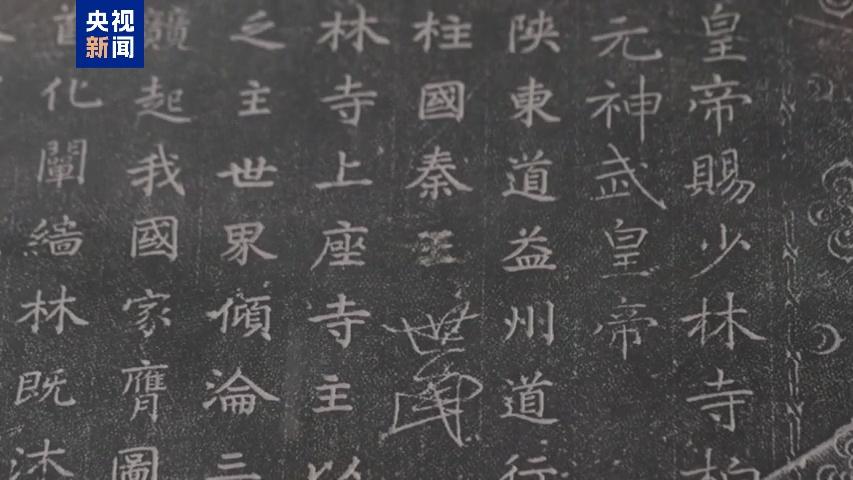 央视
新闻
皇帝賜少林寺柏
元神武皇帝
陝東道益州道行
柱國秦王世民
林寺上座寺主以
之主世界傾淪三
起我國家膺圖
首化闡緇林既沐